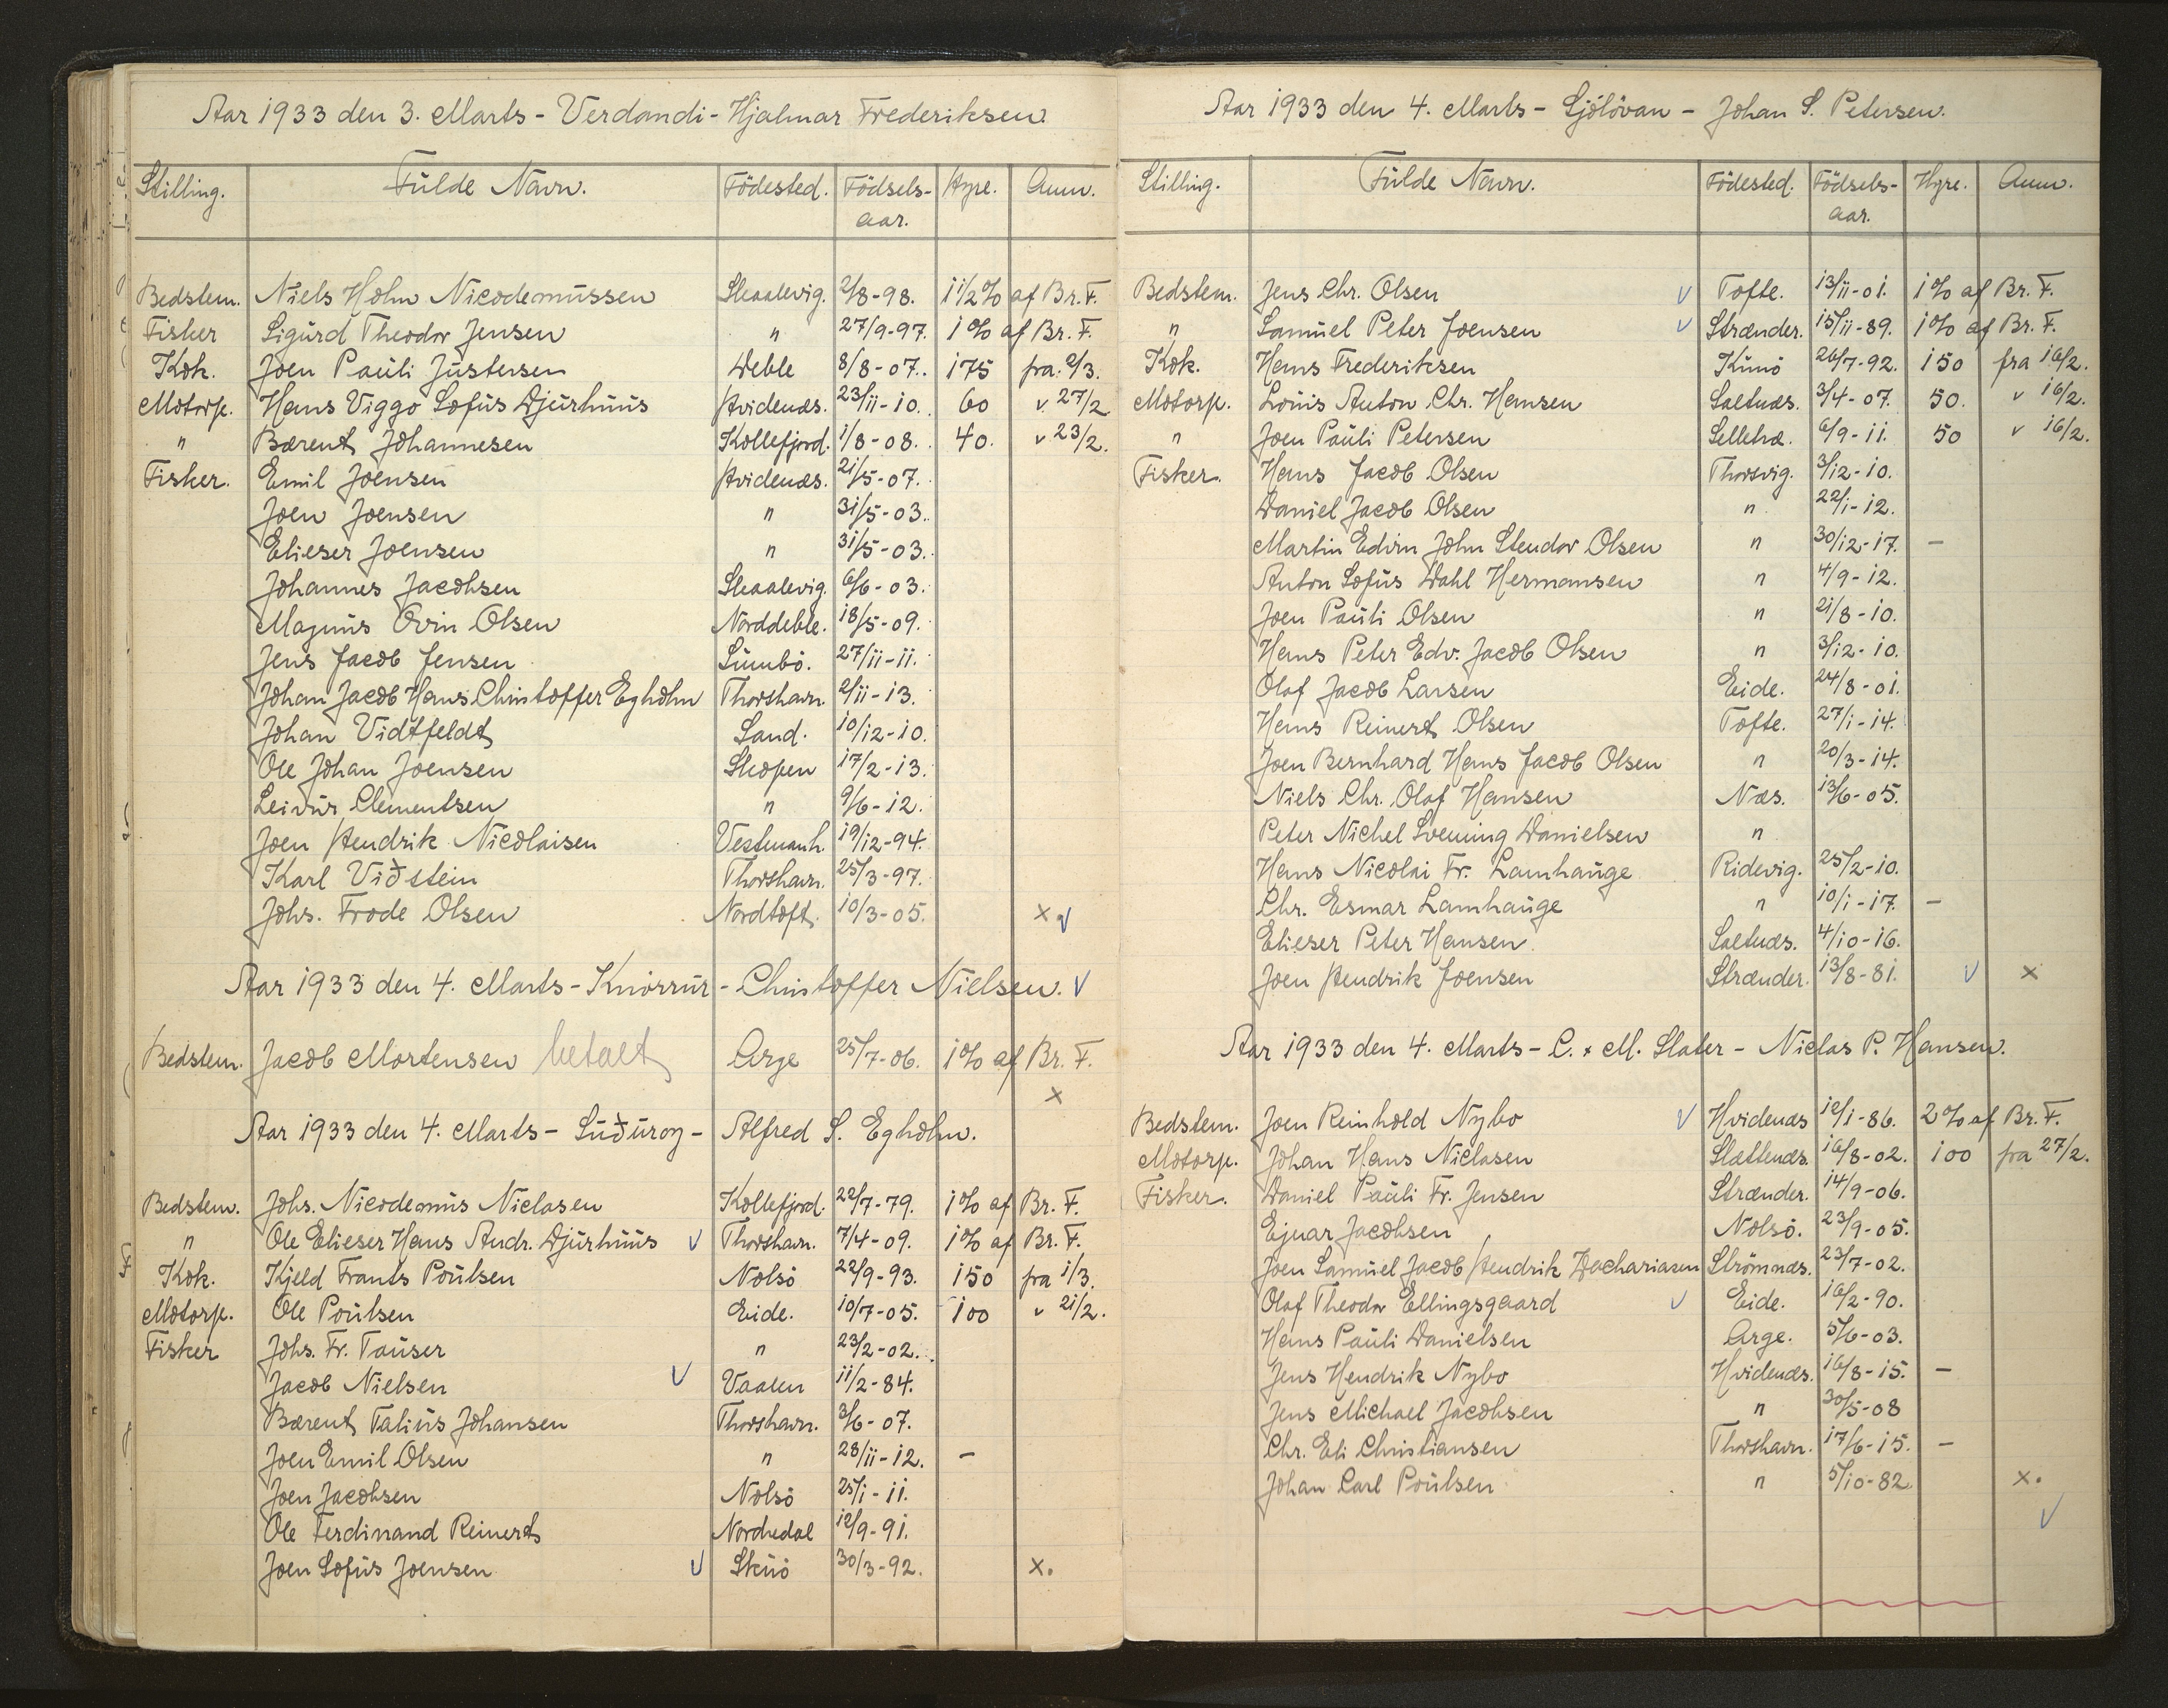 Aar 1933 den 3. Marts - Verdandi - Hjalmar Frederiksen.
Stilling. Fülde Navn. Födested. Födsels- Hyre. Anm.
aar.
Bedstem. Niels Holm Nicodemüssen Skaalevig. 2/8-98. 1 1/2 % af Br. F.
Fisker Sigürd Theodor Jensen " 27/9-97. 1 % af Br. F.
Kok. Joen Paüli Jüstersen Deble 8/8-07. 175 fra 2/3.
Motorp. Hans Viggo Sofüs Djürhüüs Hvidenæs. 23/11-10. 60 " 27/2
" Bærent Johannesen Kollefjord. 1/8-08. 40. " 23/2.
Fisker. Emil Joensen Hvidenæs. 21/5-07.
Joen Joensen " 31/5-03.
Elieser Joensen " 31/5-03.
Johannes Jacobsen Skaalevig. 6/6-03.
Magnüs Ovin Olsen Norddeble. 18/5-09.
Jens Jacob Jensen Sümbö. 27/11-11.
Johan Jacob Hans Christoffer Egholm Thorshavn. 2/11-13.
Johan Vidtfeldt Sand. 10/12-10.
Ole Johan Joensen Skopen 17/2-13.
Leivür Clementsen " 9/6-12.
Joen Hendrik Nicolaisen Vestmanh. 19/12-94.
Karl Viðstein Thorshavn. 25/3-97.
Johs. Frode Olsen Nordtoft. 10/3-05. x √
Aar 1933 den 4. Marts - Knörrür - Christoffer Nielsen. √
Bedstem. Jacob Mortensen betalt Arge 25/7-06. 1 % af Br. F.
x
Aar 1933 den 4. Marts - Süðüroy - Alfred S. Egholm.
Bedstem. Johs. Nicodemüs Niclasen Kollefjord. 22/7-79. 1 % af Br. F.
" Ole Elieser Hans Andr. Djürhüüs √ Thorshavn. 7/4-09. 1 % af Br. F.
Kok. Kjeld Frants Poülsen Nolsö 22/9-93. 150 fra 1/3.
Motorp. Ole Poülsen Eide. 10/7-05. 100 " 21/2.
Fisker Johs. Fr. Taüser " 23/2-02.
Jacob Nielsen √ Vaalen 11/2-84.
Bærent Taliüs Johansen Thorshavn. 3/6-07.
Joen Emil Olsen " 28/11-12. -
Joen Jacobsen Nolsö 25/1-11.
Ole Ferdinand Reinert Nordredal 12/9-91.
Joen Sofüs Joensen √ Sküö 30/3-92. x.
Aar 1933 den 4. Marts - Sjólövan - Johan S. Petersen.
Stilling. Fülde Navn. Födested. Födsels- Hyre. Anm.
aar.
Bedstem. Jens Chr. Olsen √ Tofte. 13/11-01. 1 % af Br. F.
" Samüel Peter Joensen √ Strænder. 15/11-89. 1 % af Br. F.
Kok. Hans Frederiksen Künö 26/7-92. 150 fra 16/2.
Motorp. Loüis Anton Chr. Hansen Saltnæs. 3/4-07. 50. " 16/2.
" Joen Paüli Petersen Selletræ. 6/9-11. 50 " 16/2.
Fisker. Hans Jacob Olsen Thorsvig. 3/12-10.
Daniel Jacob Olsen " 22/1-12.
Martin Edvin John Steudor Olsen " 30/12-17. -
Anton Sofüs Dahl Hermansen " 4/9-12.
Joen Paüli Olsen " 21/8-10.
Hans Peter Edv. Jacob Olsen " 3/12-10.
Olaf Jacob Larsen Eide. 24/8-01.
Hans Reinert Olsen Tofte. 27/1-14.
Joen Bernhard Hans Jacob Olsen " 20/3-14.
Niels Chr. Olaf Hansen Næs. 13/6-05.
Peter Nichel Svenning Danielsen "
Hans Nicolai Fr. Lamhaüge Ridevig. 25/2-10.
Chr. Esmar Lamhaüge " 10/1-17. -
Elieser Peter Hansen. Saltnæs. 4/10-16.
Joen Hendrik Joensen Strænder. 13/8-81. √ x
Aar 1933 den 4. Marts - C. & M. Slater - Niclas P. Hansen.
Bedstem. Joen Reinhold Nybo √ Hvidenæs 12/1-86. 2 % af Br. F.
Motorp. Johan Hans Niclasen Slættenæs. 16/8-02. 100 fra 27/2.
Fisker. Daniel Paüli Fr. Jensen Strænder. 14/9-06.
Ejnar Jacobsen Nolsö. 23/9-05.
Joen Samüel Jacob Hendrik Zachariasen Strömnæs. 23/7-02.
Olaf Theodor Ellingsgaard √ Eide. 16/2-90.
Hans Paüli Danielsen Arge. 5/6-03.
Jens Hendrik Nybo Hvidenæs. 16/8-15. -
Jens Michael Jacobsen " 30/5-08
Chr. Eli Christiansen Thorshavn. 17/6-15. -
Johan Carl Poülsen " 5/10-82. x.
√